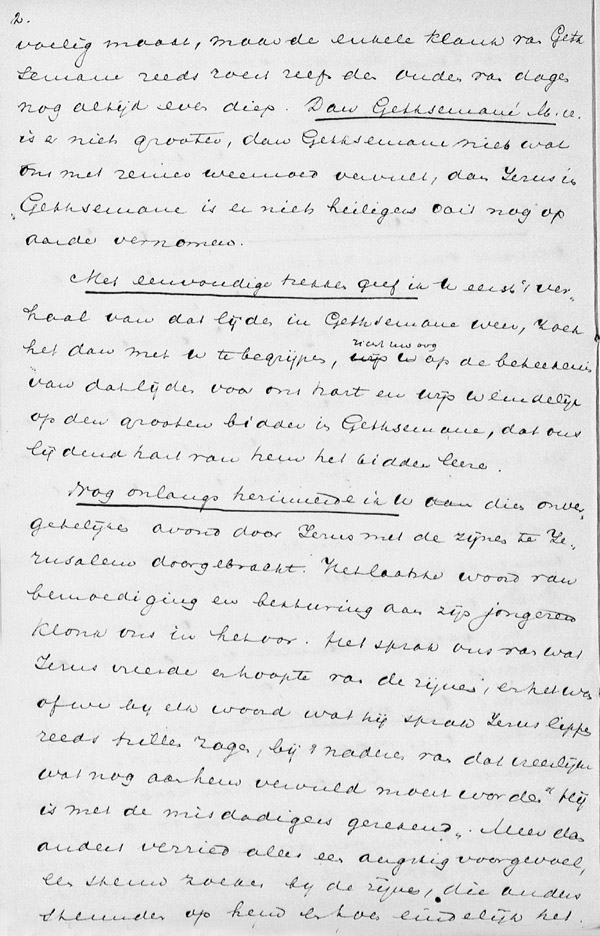 2.
voelig maakt, maar de enkele klank van Geth
semane reeds roert zelfs den ouden van dagen
nog altijd even diep. Dan Gethsemané M.V.
is er niets grooter, dan Gethsemane niets wat
ons met reiner weemoed vervult, dan Jezus in
Gethsemane is er niets heiligers ooit nog op
aarde vernomen.
Met eenvoudige trekken geef ik U eerst 't ver-
haal van dat lijden in Gethsemane weer, zoek
het dan met U te begrijpen,
richt uw oog
op de beteekenis
van dat lijden voor ons hart en wijs U eindelijk
op den grooten bidder in Gethsemane, dat ons
lijdend hart van hem het bidden leere.
Nog onlangs herinnerde ik U aan dien onver-
getelijken avond door Jezus met de zijnen te Je-
ruzalem doorgebracht. Het laatste woord van
bemoediging en besturing aan zijn jongeren
klonk ons in het oor. Het sprak ons van wat
Jezus vreesde en hoopte van de zijnen, en het was
of we bij elk woord wat hij sprak Jezus lippen
reeds trillen zagen, bij 't naderen van dat vreeslijke
wat nog aan hem vervuld moest worden "Hij
is met de misdadigers gerekend". Meer dan
anders verried alles een angstig voorgevoel,
een steun zoeken bij de zijnen, die anders
steunden op hem en hoe eindelijk het.